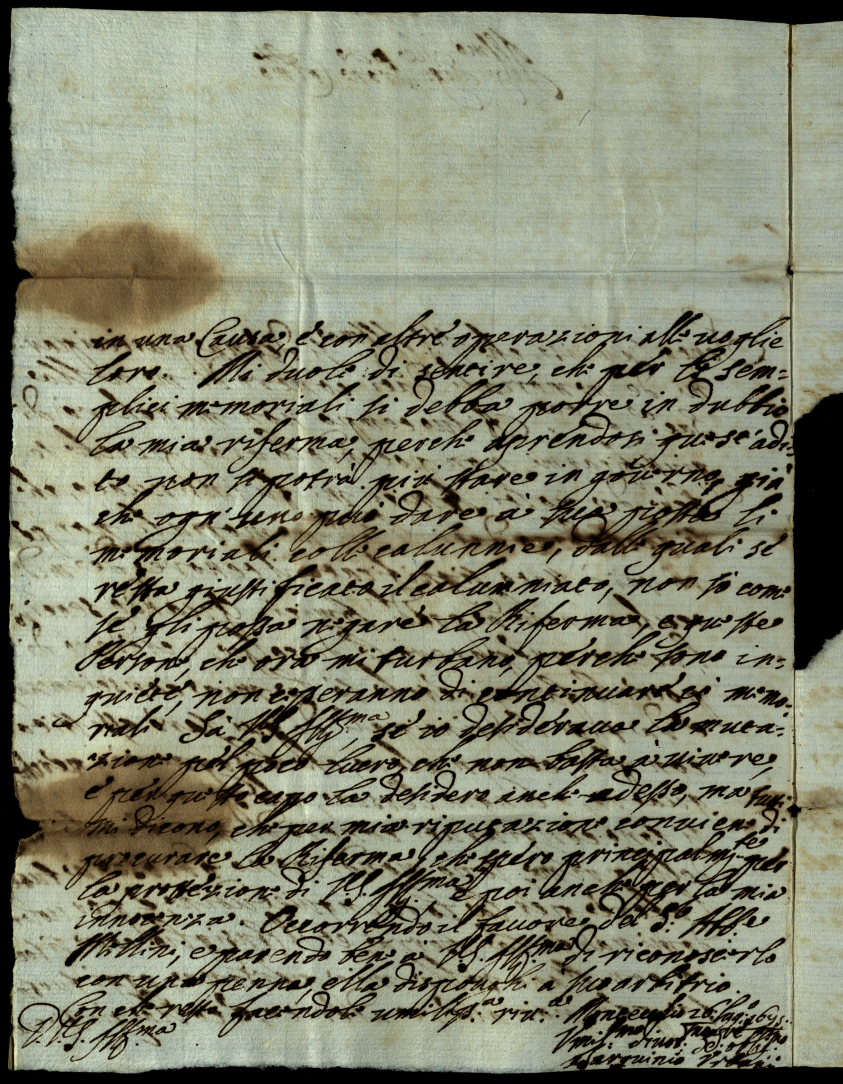 in una Causa, è con altre operazioni alle uoglie
loro. Mi duole di sentire, che per li sem=
plici memoriali si debba porre in dubbio
la mia riferma, perche aprendosi quest'adi=
to non si potrà più stare in gouerno, già
che ogn'uno può dare à sua posta li
memoriali colle calunnie, dalle quali se
resta giustificato il calumniato, non sò come
se gli possa negare la Riferma, e queste
Persone, che ora mi turbano, perche sono in=
quiete, non cesseranno di continuare i memo=
riali. Sà V.S. Ill.ma, se io desideraua la muta=
zione pel poco lucro, che non basta à uiuere,
e per questo capo la desidero anche adesso, ma tutti
mi dicono, che per mia riputazione conuiene di
procurare la Riferma, che spero principalm.te per
la protezione di V.S. Ill.ma, e poi anche per la mia
innocenza. Occorrendo il fauore del S.r Abb.e
Mellini, e parendo bene à V.S. Ill.ma di riconoscerlo
con una penna, ella disponghi a suo arbitrio.
Con che resto facendole umiliss.a riu.a
D. V.S. Ill.ma